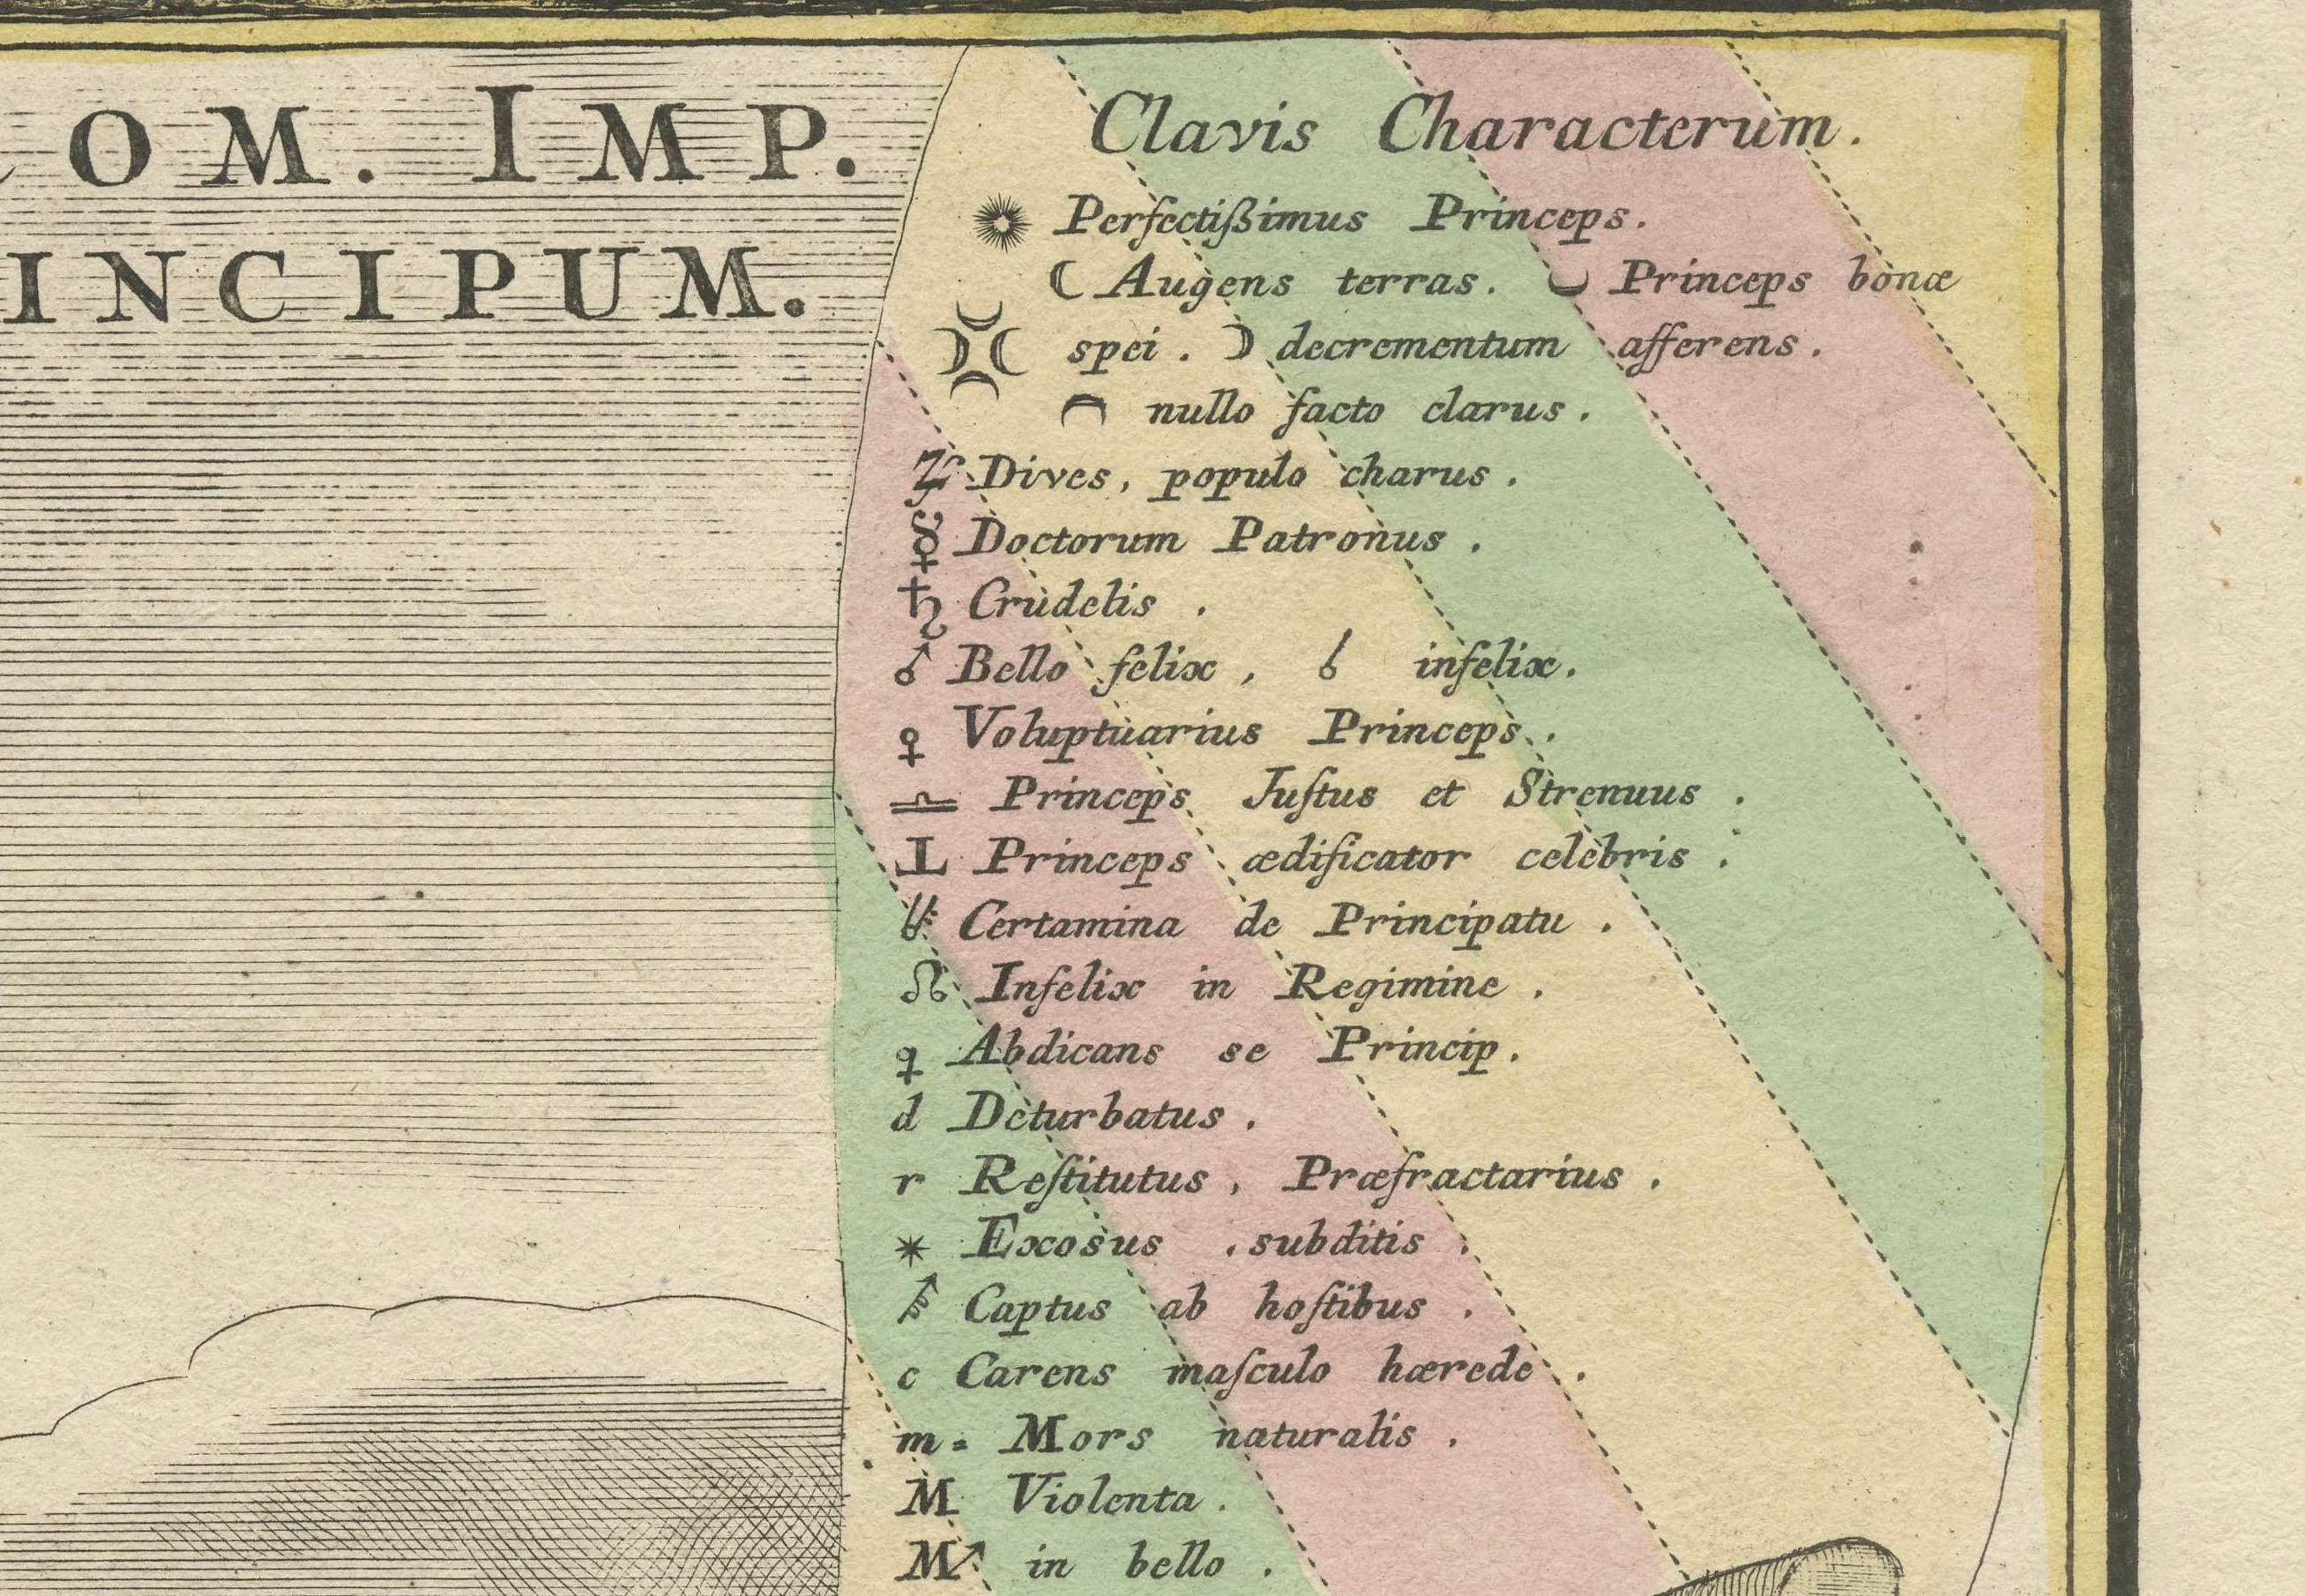 OM. IMP.
INCIPUM.
Clavis Characterum.
☼ Perfectißimus Princeps.
☾ Augens terras. ◡ Princeps bonæ
spei. ☽ decrementum afferens.
◠ nullo facto clarus.
♃ Dives, populo charus.
☿ Doctorum Patronus.
♄ Crudelis.
♂ Bello felix, infelix.
♀ Voluptuarius Princeps.
♎ Princeps Juſtus et Strenuus.
⊥ Princeps ædificator celebris.
Certamina de Principatu.
☊ Infelix in Regimine.
Abdicans se Princip.
d Deturbatus.
r Reſtitutus, Præfractarius.
* Exosus subditis.
Captus ab hoſtibus.
c Carens maſculo hærede.
m = Mors naturalis.
M Violenta.
M↗ in bello.